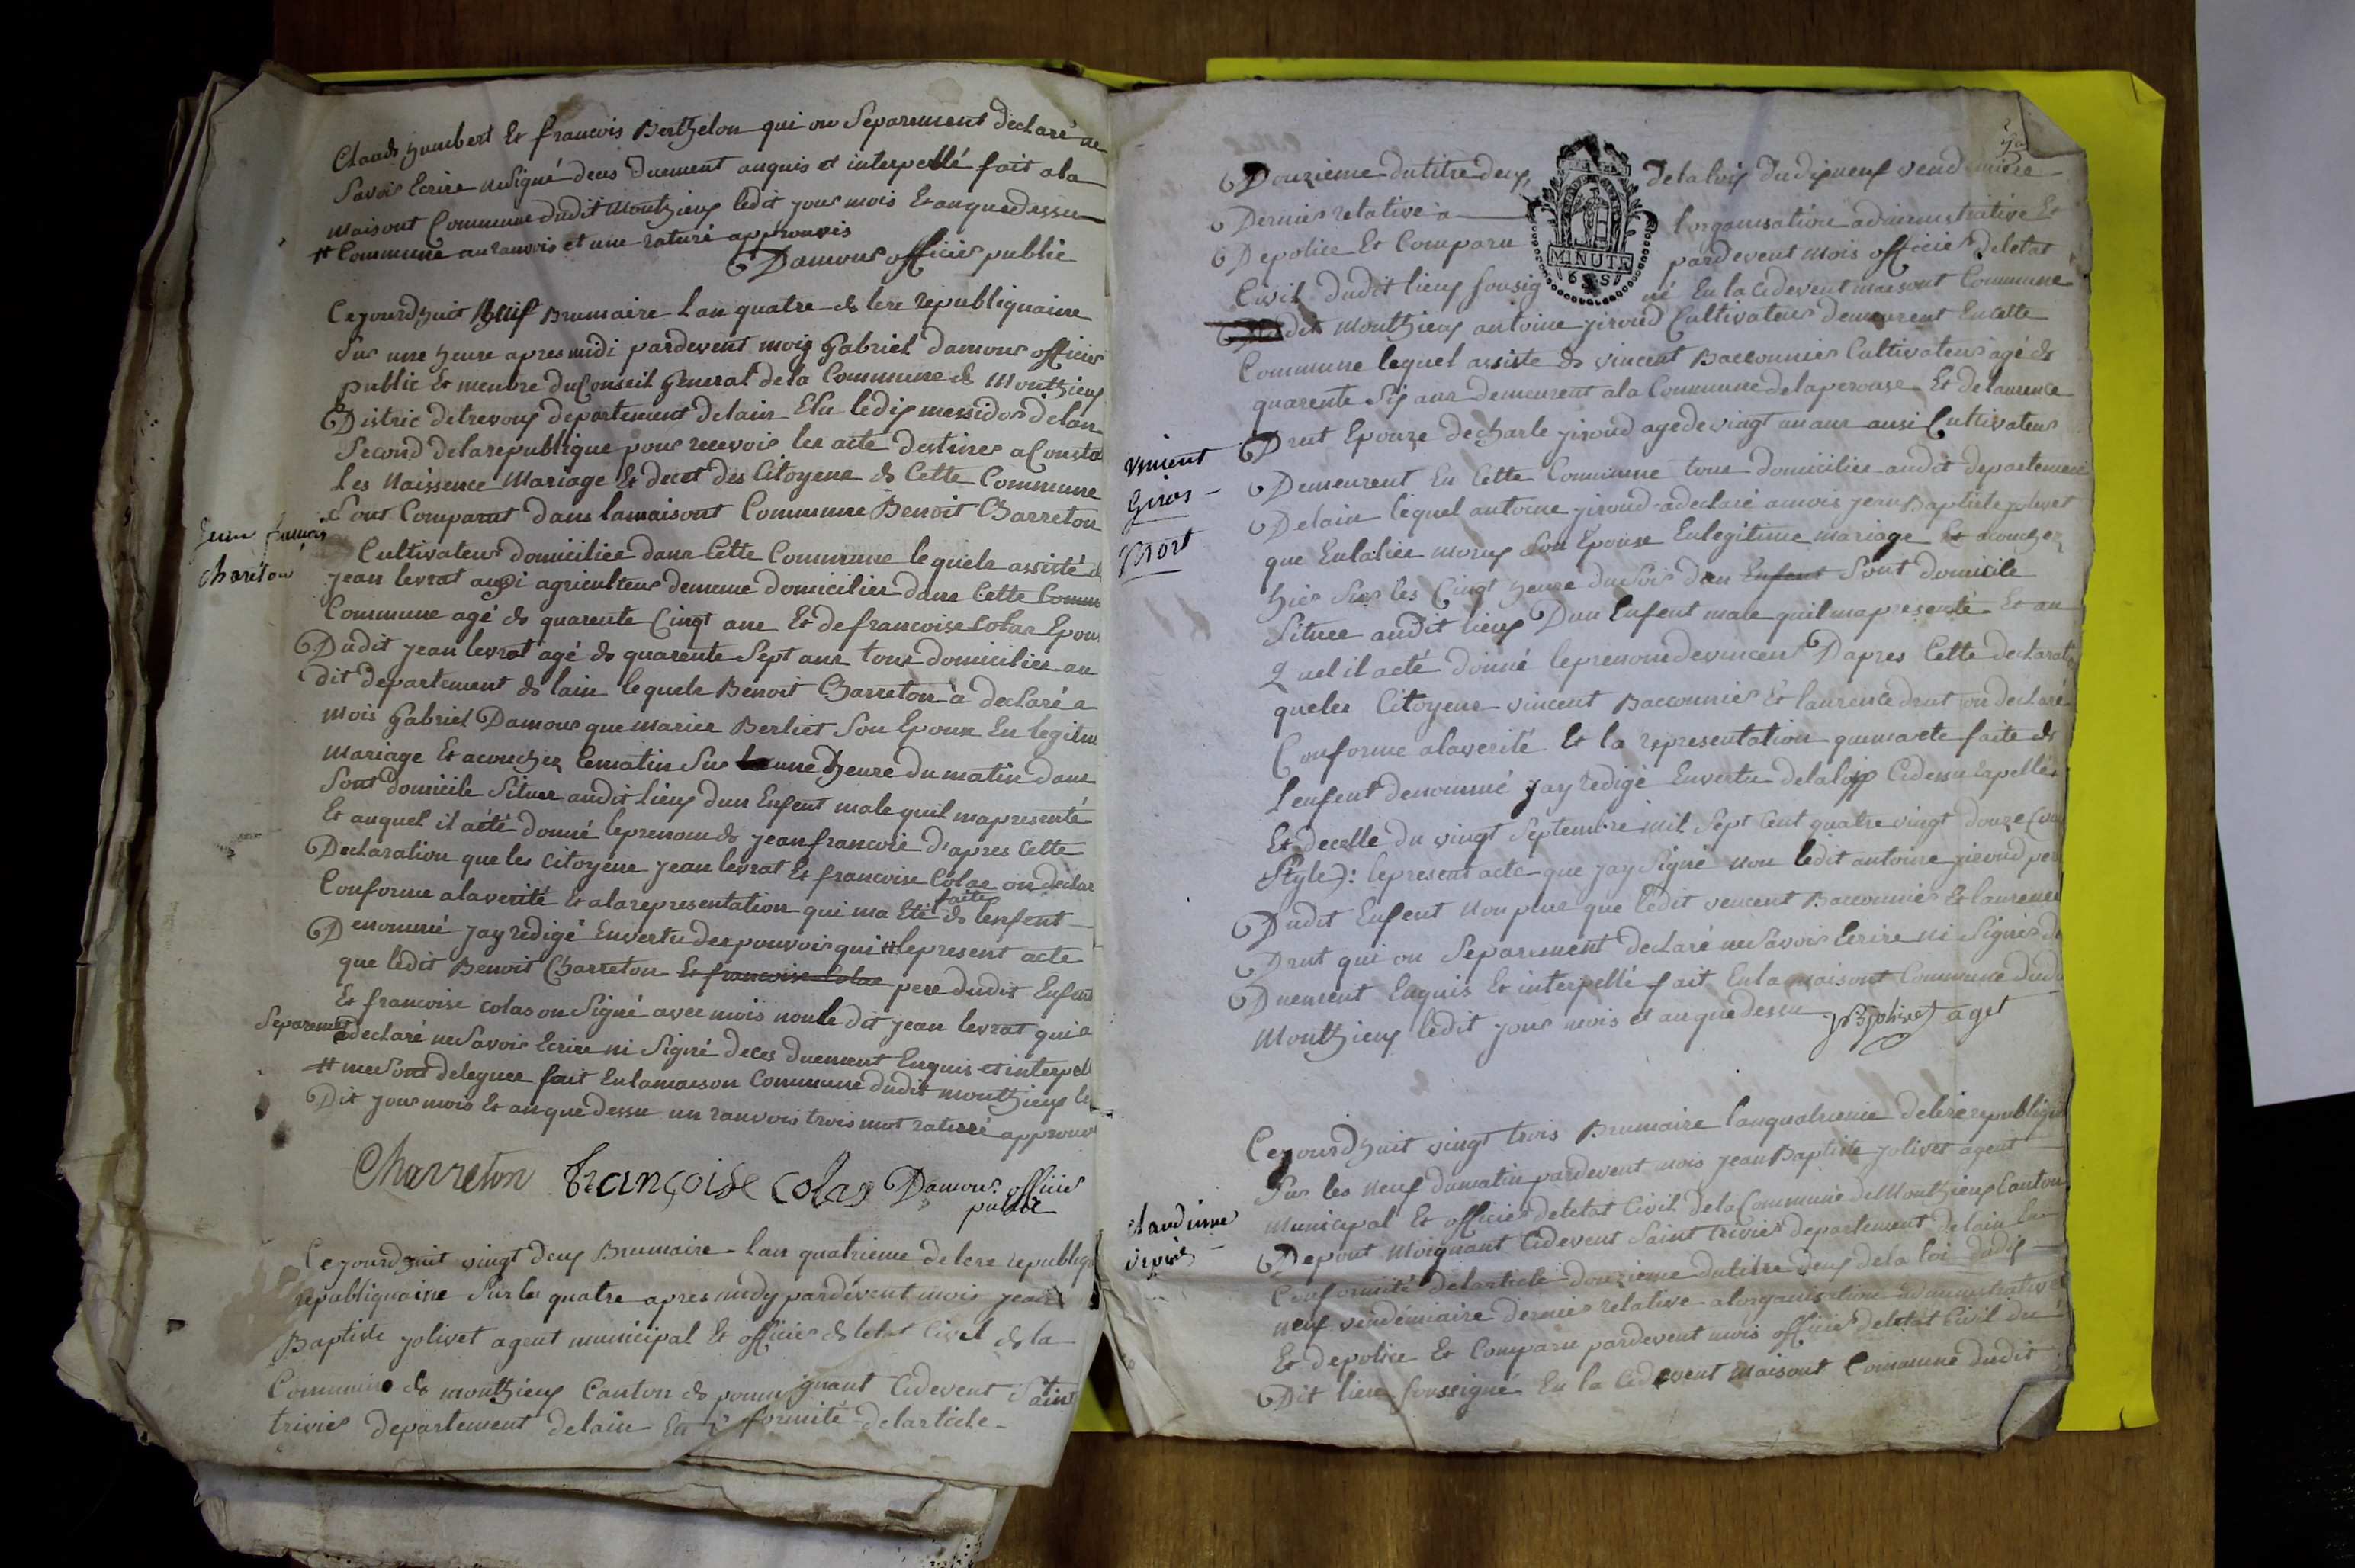 Claude humbert Et francois Berthelon qui on Separement declaré ne
Savoir Ecrire ne signé deces Duement anquis et interpellé fait a la
maisont Commune dudit Monthieux ledit jour mois Et anque dessu
# Commune au ranvois et une raturé approuvés
Damour officier public
Cejourdhuit Neuf Brumaire L an quatre de lere republiquaine
Sur une heure apres midi pardevent moy Gabriel damour officier
public Et menbre du Conseil General de la Commune de Monthieux
District de trevoux departement delain Elu le dix messidor de lan
Second dela republique pour recevoir les acté destinés a Consta
Les Naissence Mariage Et decet des Citoyens de Cette Commune
Sont Comparut dans lamaisont Commune Benoit Charreton
Jean francois
Charéton
Cultivateur domiciliée dans Cette Commune lequele assisté de
jean levrat aussi agriculteur dememe domicilier dans Cette Comm
Commune agé de quarente Cinqt ans Et de francoise Colas Epou
Dudit jean levrat agé de quarente Sept ans tous domicilier au
dit departement de lain lequele Benoit Charreton a declaré a
mois Gabriel Damour que mariee Berliet Son Epouse En legitim
mariage Et acouchez lematin Sur la une heure du matin dans
Sont domicile Situer audit Lieux dun Enfent male quil mapresenté
Et auquel il acté donné le prenom de jean francois d'apres Cette
Declaration que les Citoyens jean levrat Et francoise Colas on declar
Conforme alaverité Et ala representation qui ma Eté faite de lenfent
Denommé jay redigé Envertu des pouvoir qui # le present acté
que ledit Benoit Charreton Et francoise Colas pere dudit Enfent
Et francoise colas on Signé avec mois nonle dit jean levrat qui a
Separement declaré ne Savoir Ecrire ni Signé deces duement Enquis et interpell
# me Sont deleguer fait Enlamaison Commune dudit monthieux le
Dit jour mois Et anque dessu un ranvois trois mot raturé approuv
Charreton françoise colas Damour officier
public
Cejourdhuit vingt deux Brumaire lan quatrieme de lere republiq
republiquaine Sur les quatre apres midy pardevent mois jean
Baptiste jolivet agent municipal Et officier de letat Civil de la
Commune de monthieux Canton de pont moignant Cidevent Saint
trivier departement delain En formité delarticle
Douzieme du titre deux de la loix du dix neuf vendemiere
Dernier relative a l organisation administrative Et
De police Et Comparu pardevent mois officier de letat
Civil dudit lieux sousig né En la Cidevent maisont Commune
Dudit Monthieux antoine jiroud Cultivateur demeurent En cette
Commune lequel assiste de vincent Bacconnier Cultivateur agé de
quarente Six ans demeurent ala Commune delaperouse Et de laurence
Drut Epouze de charle jiroud agé de vingt un ans ausi Cultivateur
vincent
Giros
Mort
Demeurent En Cette Commune tous domicilies audit departement
Delain lequel antoine jiroud a declaré amois jean Baptiste jolivet
que Eulaliee morux Son Epouse En legitime mariage Et acouchez
hier Sur les Cinqt heure du Soir dan Enfent Sont domicile
Situee audit lieux Dun Enfent male quil mapresenté Et au
quel il acté donné le prenom de vincent Dapres Cette declarati
queles Citoyens vincent Bacconnier Et laurence drut on declaré
Conforme alaverité Et la representation quema eté faite de
Lenfent denommé jay redigé Envertu de la loix Cidessu rapellée
Et decelle du vingt Septembre mil Sept Cent quatre vingt douze
Style): lepresent acte que jay Signé non ledit antoine jiroud per
Dudit Enfent Non plus que ledit vencent Bacconnier Et laurence
Drut qui on Separement declaré ne Savoir Ecrire ni Signés de
Duement Enquis Et interpellé fait En la maisont Commune dudi
Monthieux ledit jour mois et anque dessu JB jolivet aget
Cejourdhuit vingt trois Brumaire lanquatrieme delere republiqu
Sur les neuf dumatin pardevent mois jean Baptiste jolivet agent
municipal Et officier de letat Civil de la Commune de Monthieux Canton
claudine
Depont Moignant Cidevent Saint trivier departement delain En
Conformité delarticle douzieme du titre deux de la loi du dix
neuf vendémiaire dernier relative alorganisation administrative
Et depolice Et Comparu pardevent mois officier deletat Civil du
Dit lieu sousigné En la Cidevent Maisont Commune dudit